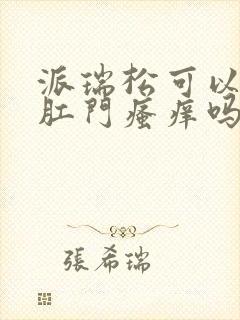 派瑞松可以
肛門瘙痒吗
張希瑞